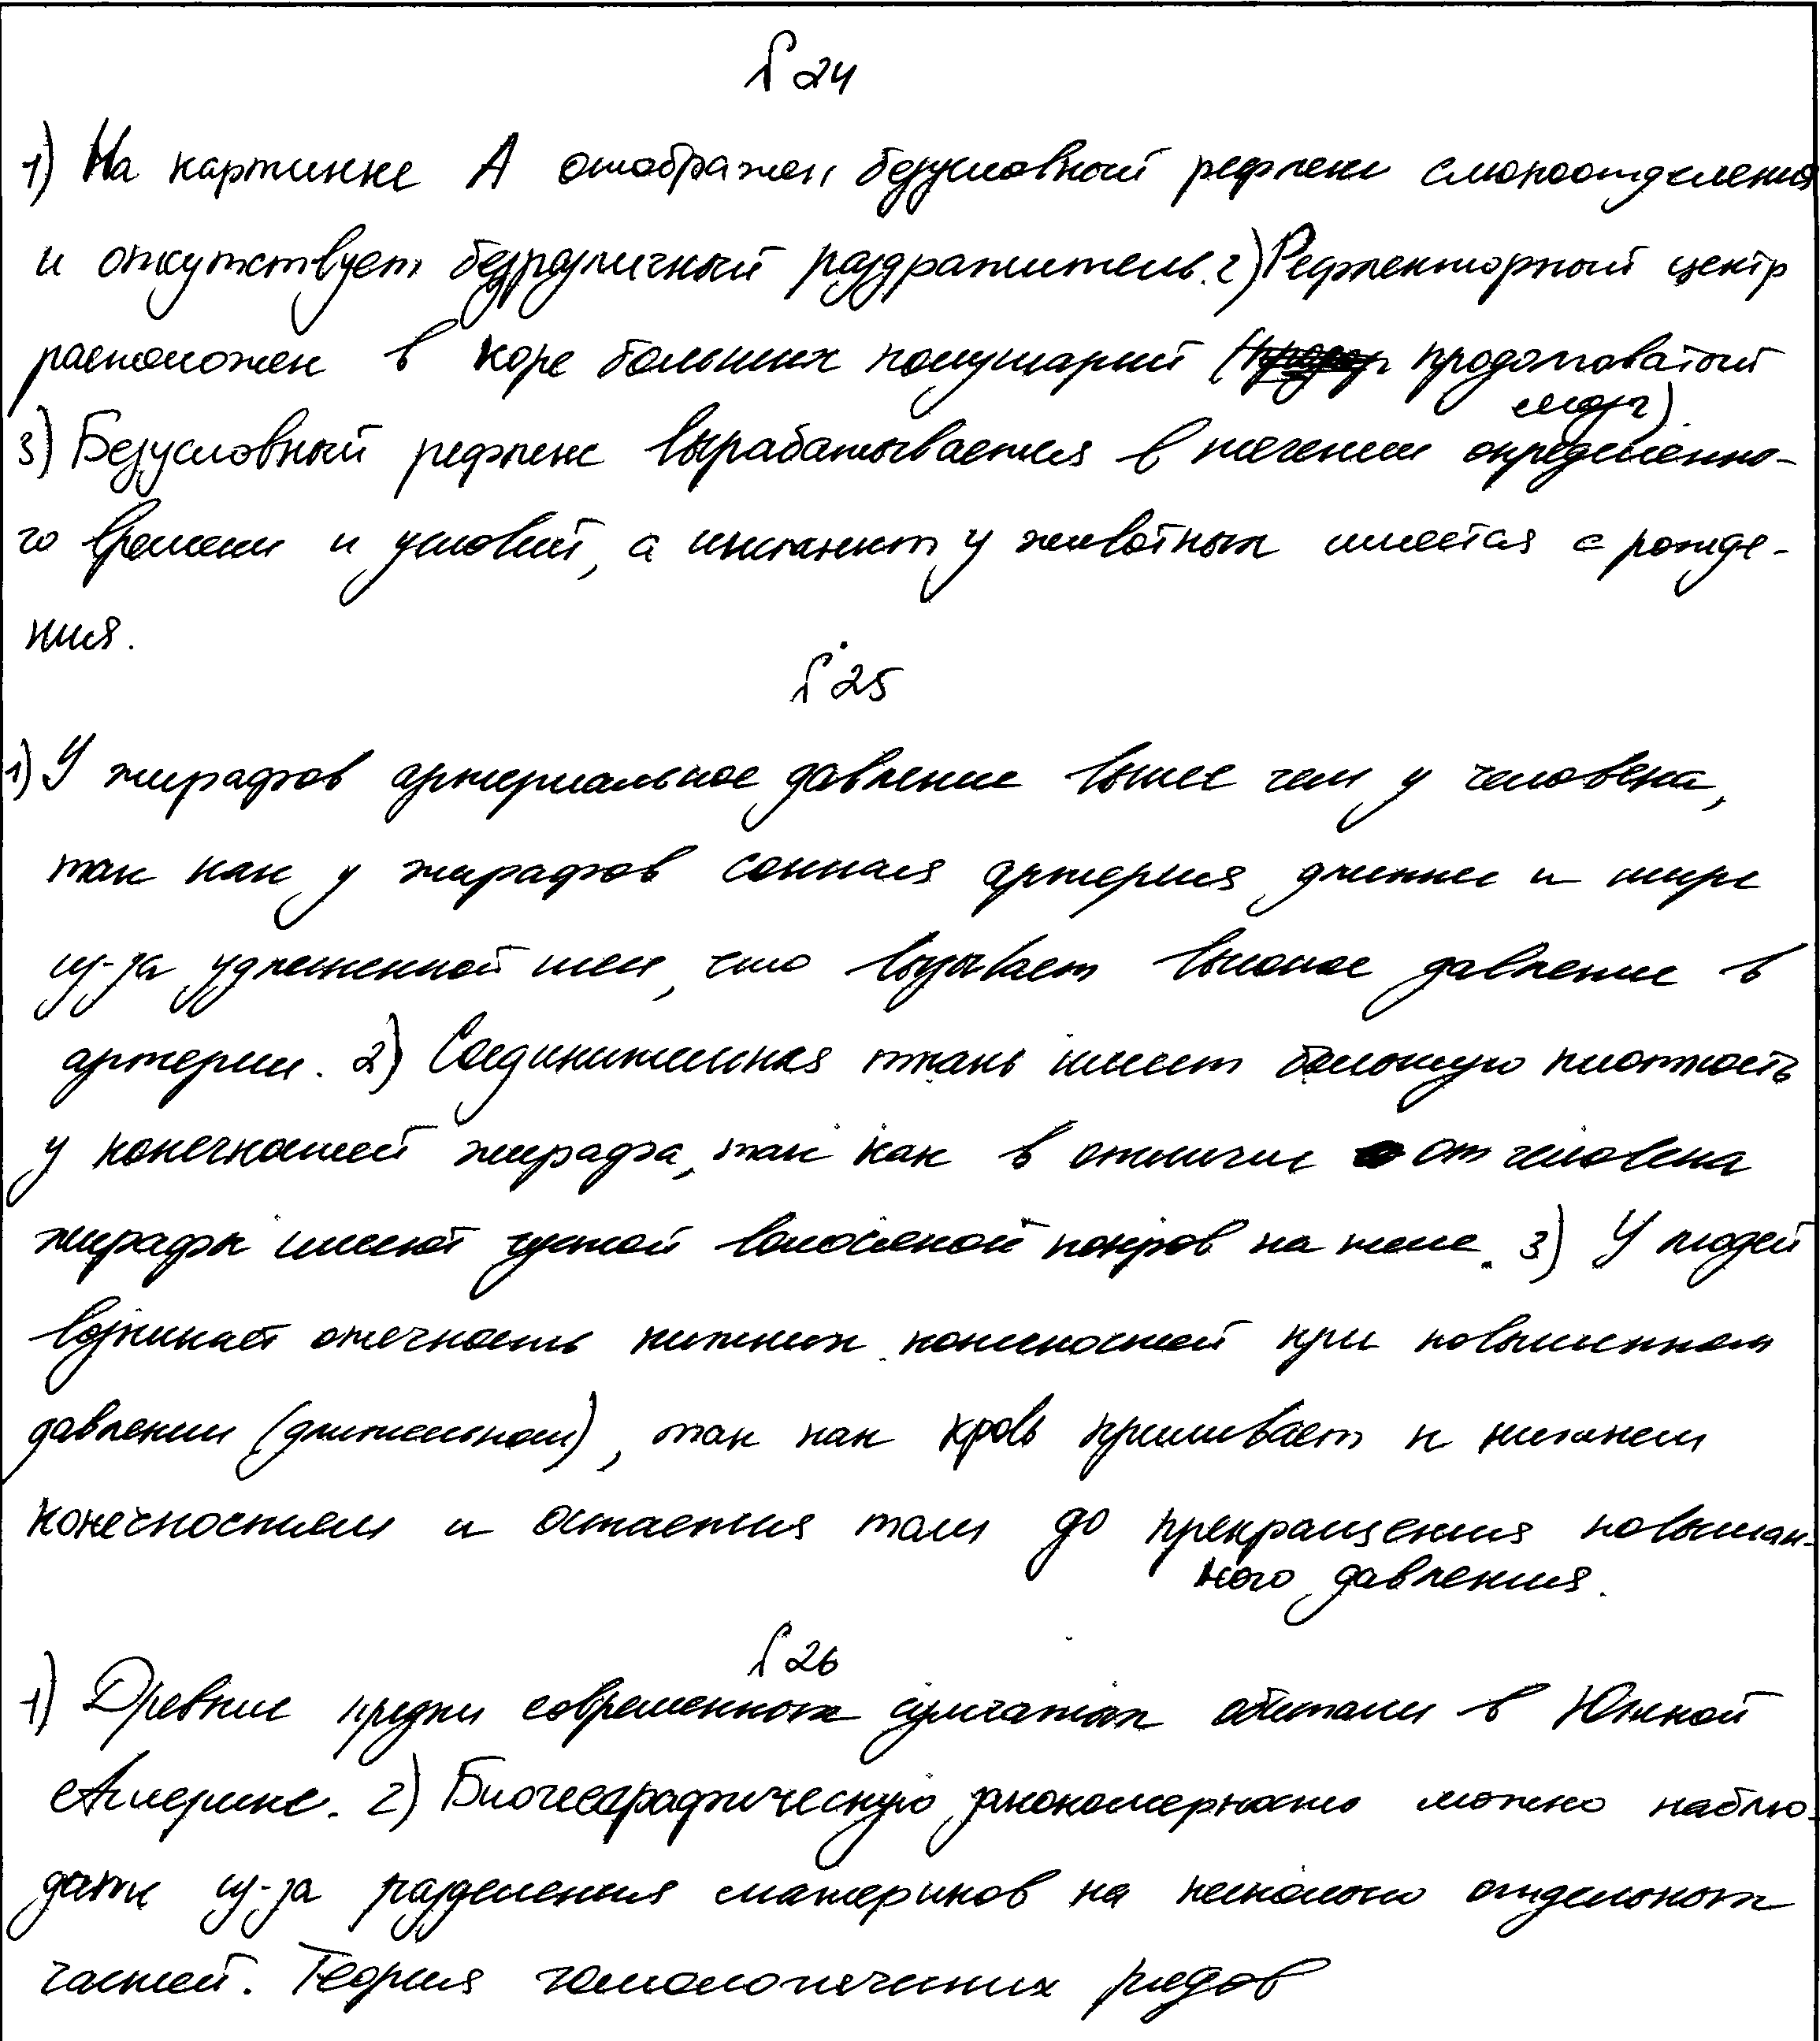 № 24
1) На картинке А отображен безусловный рефлекс слюноотделения
и отсутствует безразличный раздражитель. 2) Рефлекторный центр
расположен в коре больших полушарий ( продолговатый
мозг).
3) Безусловный рефлекс вырабатывается в течении определенно-
го времени и условий, а инстинкт у животных имеется с рожде-
ния.
№ 25
1) У жирафов артериальное давление выше чем у человека,
так как у жирафов сонная артерия длиннее и шире
из-за удлененной шеи, что вызывает высокое давление в
артерии. 2) Соединительная ткань имеет большую плотность
у конечностей жирафа, так как в отличии от человека
жирафы имеют густой волосяной покров на теле. 3) У людей
возникает отечность нижних конечностей при повышенном
давлении (длительном), так как кровь приливает к нижнем
конечностям и остается там до прекращения повышан-
ного давления.
№ 26
1) Древние предки современных сумчатых обитали в Южной
Америке. 2) Биогеографическую закономерность можно наблю-
дать из-за разделения материков на несколько отдельных
частей. Теория гомологических рядов